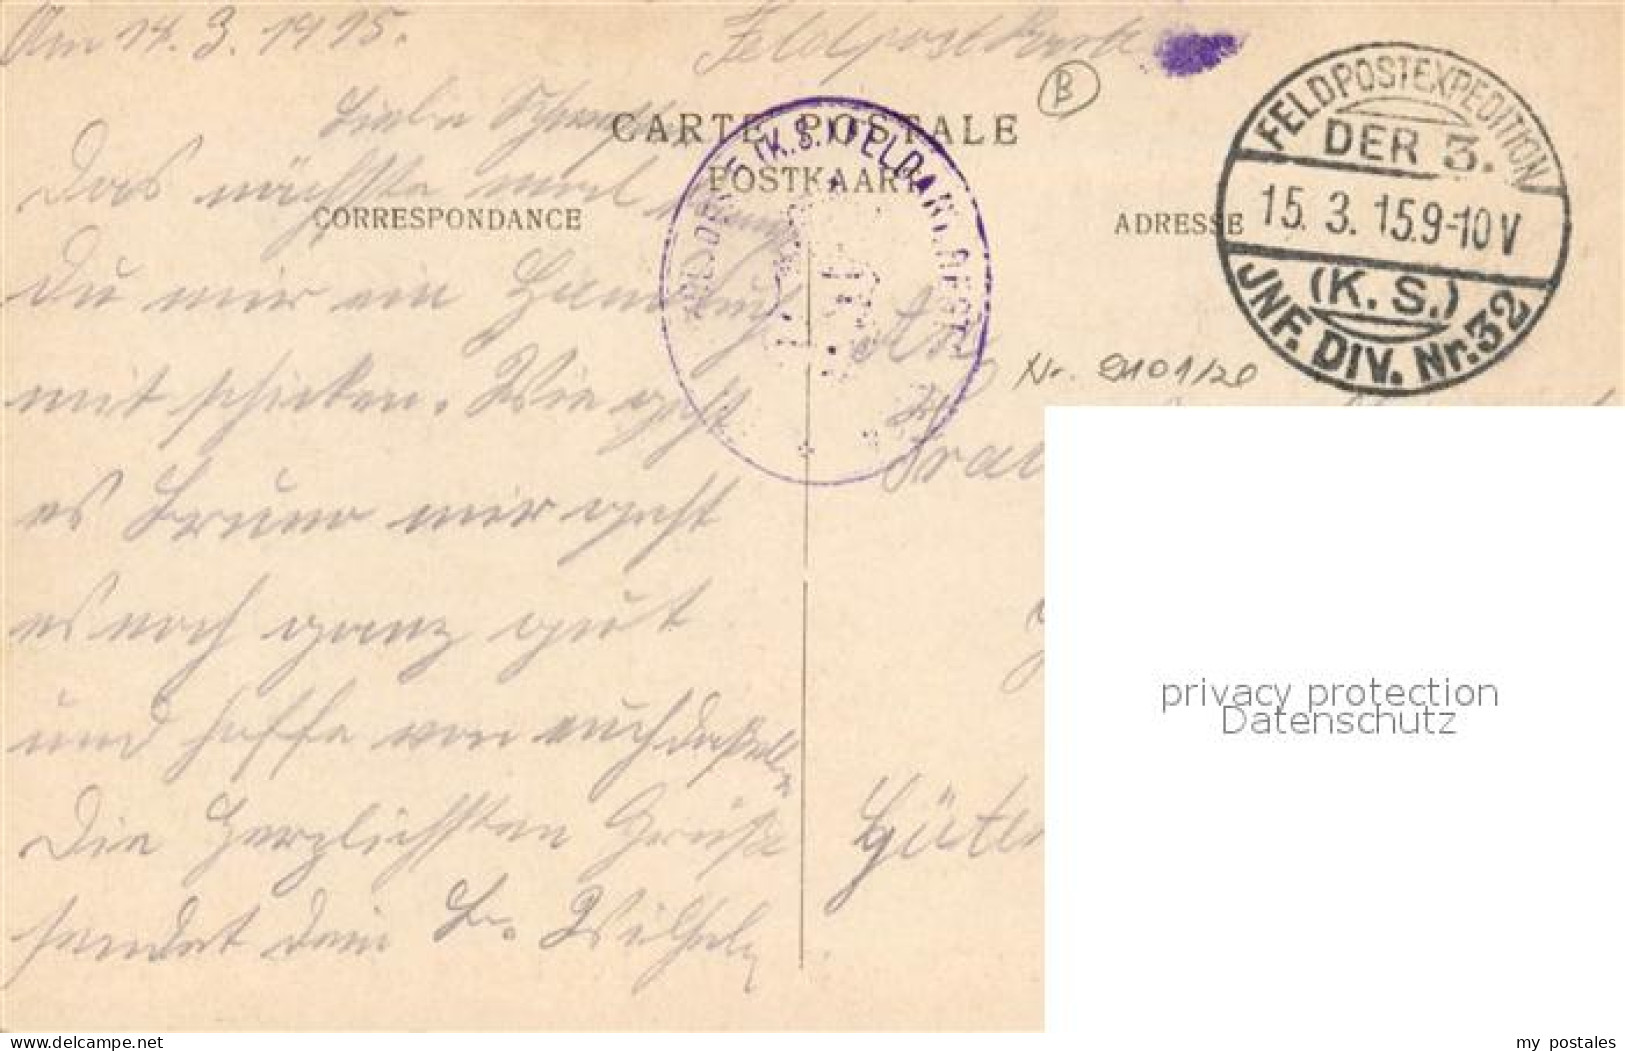 Am 14. 3. 1915. Feldpostkarte
B
CARTE POSTALE
POSTKAART
CORRESPONDANCE
ADRESSE
FELDPOSTEXPEDITION
DER 3.
15. 3. 15.9-10V
(K. S.)
JNF. DIV. Nr. 32
(K.S.) FELDART. REGT.
Nr. 9101/20
Liebe
Das nächste mal
Du mir ein
mit schicken. Wie geht
es Bruno mir geht
es noch ganz gut
und hoffe von euch dasselbe
Die Herzlichsten Grüße
sendet dein Br. Wilhelm
An
privacy protection
Datenschutz
www.delcampe.net
my_postales